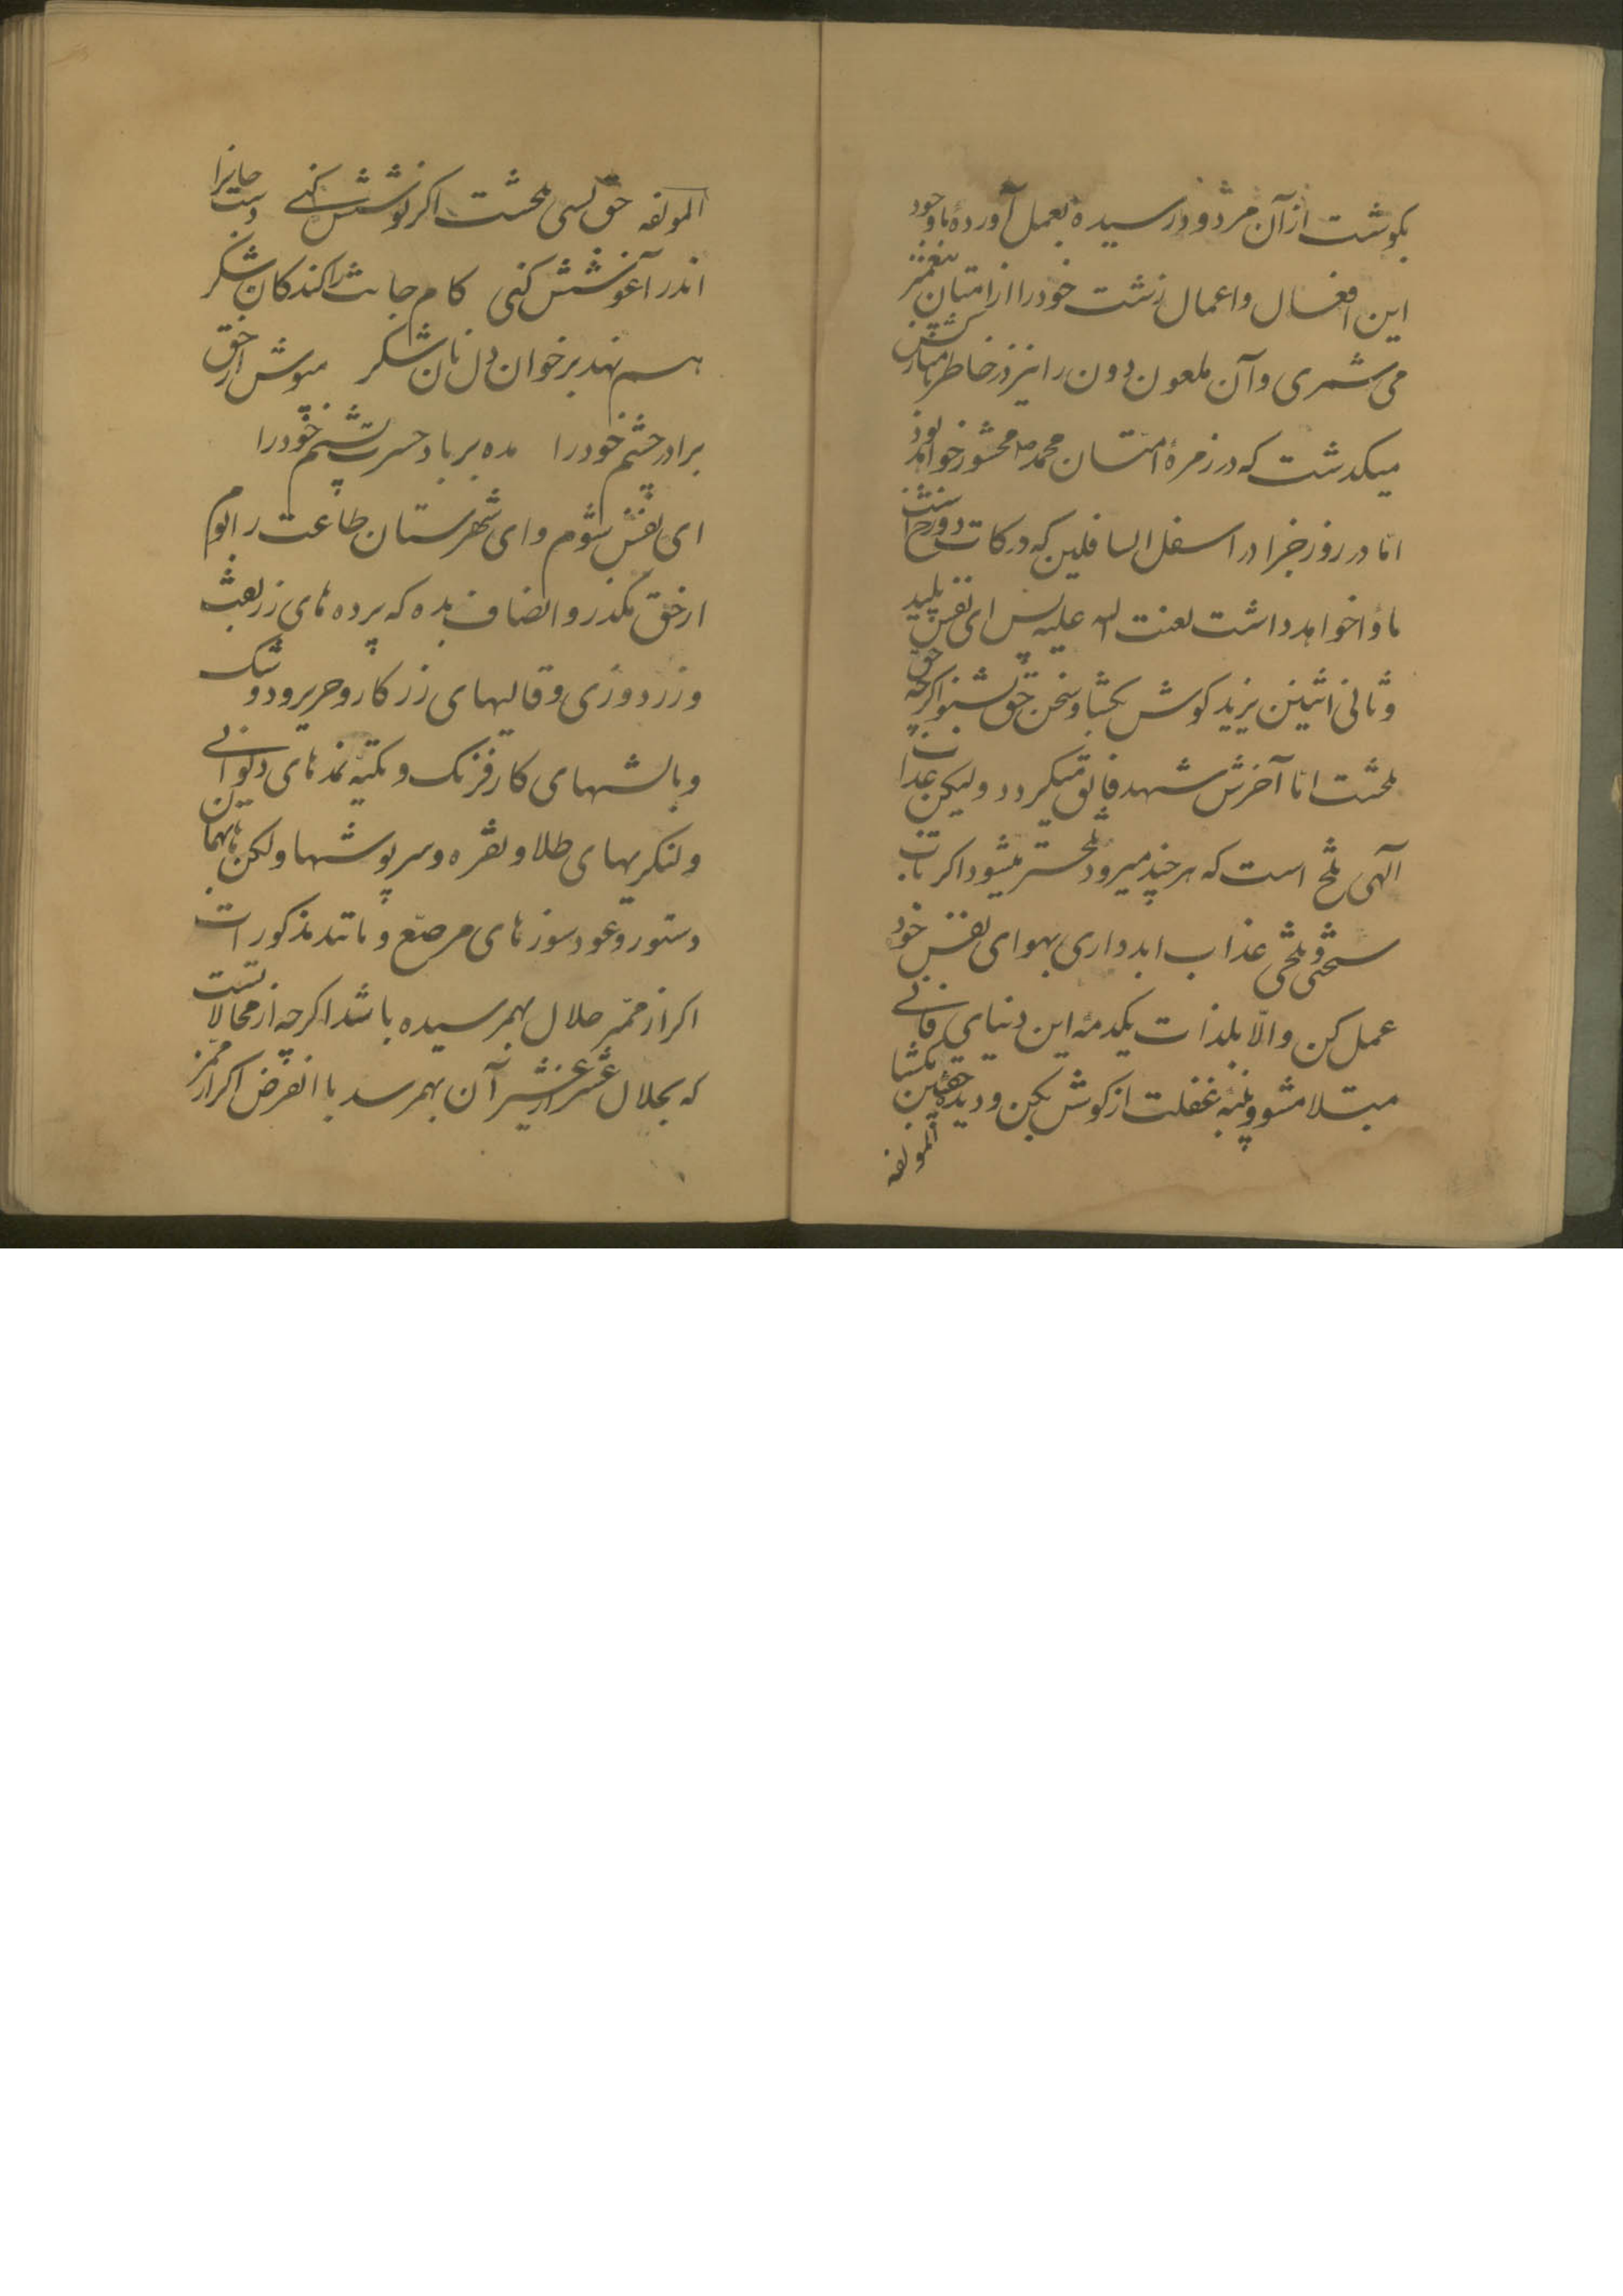 بکوشت از آن مردود رسیده بعمل آورده باوجود
این افعال و اعمال زشت خودرا از امتان پیغمبر
می شمری و آن ملعون دون را نیز در خاطر نامبارکش
میکدشت که در زمرهٔ امتان محمد ص محشور خواهد بود
اما در روز جزا در اسفل السافلین که درکات دوزخ است
ماوٰا خواهد داشت لعنت الله علیه پس ای نفس پلید
و ثانی اثنین یزید کوش بکشا و سخن حق بشنو اکرچه حق
تلخست اما آخرش شهد فایق میکردد ولیکن عذاب
آلهی تلخ است که هر چند میرود تلختر میشود اکر تاب
سختی و تلخی عذاب ابد داری بهوای نفس خود
عمل کن والّا بلذات یکدمهٔ این دنیای فانی
مبتلا مشو و پنبهٔ غفلت از کوش بکن و دیدهٔ حق بین بکشا
المولفه
المولفه حق بسی تلخست اکر نوشش کنی دست جانرا
اندر آغوشش کنی کام جانت را کند کان شکر
هم نهد بر خوان دل نان شکر مپوش از حق
برادر چشم خودرا مده بر باد حسرت پشم خودرا
ای نفس شوم و ای شهرستان طاعت را بوم
از حق مکذر و انصاف بده که پرده های زربفت
و زردوزی و قالیهای زرکار و حریر و دوشک
و بالشهای کار فرنک و تکیه نمدهای
و لنکریهای طلا و نقره و سرپوشها و لکن
دستور و عود سوزهای مرصّع و مانند مذکورات
اکر از ممّر حلال بهمرسیده باشد اکرچه از محالاتست
که بحلال عشری از عشیر آن بهمرسد با الفرض اکر از ممّر